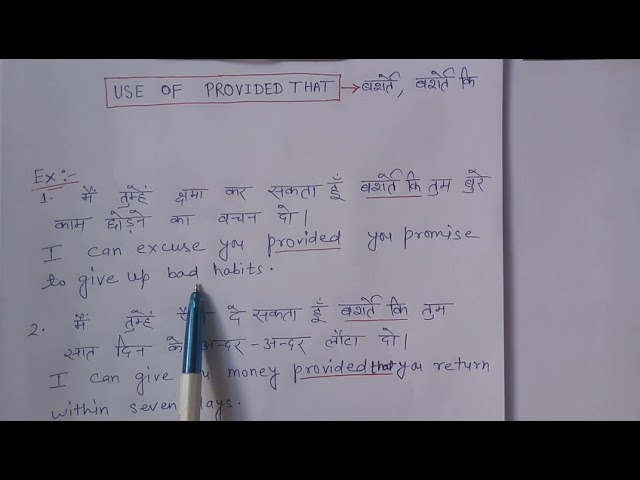 USE OF PROVIDED THAT → बशर्ते, बशर्ते कि
Ex:-
1. मैं तुम्हें क्षमा कर सकता हूँ बशर्ते कि तुम बुरे
काम छोड़ने का वचन दो।
I can excuse you provided you promise
to give up bad habits.
2. मैं तुम्हें दे सकता हूँ बशर्ते कि तुम
सात दिन के अन्दर-अन्दर लौटा दो।
I can give money provided that you return
within seven days.